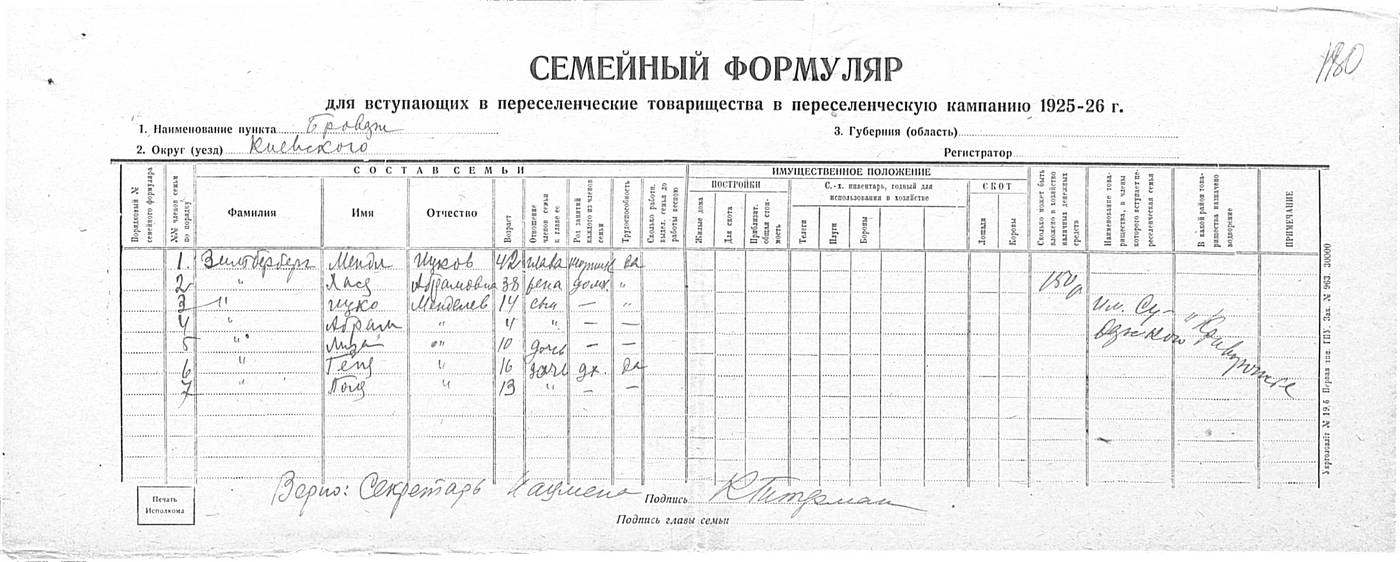 180
СЕМЕЙНЫЙ ФОРМУЛЯР
для вступающих в переселенческие товарищества в переселенческую кампанию 1925-26 г.
1. Наименование пункта
3. Губерния (область)
2. Округ (уезд) Киевского
Регистратор
СОСТАВ СЕМЬИ
ИМУЩЕСТВЕННОЕ ПОЛОЖЕНИЕ
Порядковый № семейного формуляра
№№ членов семьи по порядку
Фамилия
Имя
Отчество
Возраст
Отношение членов семьи к главе ее
Род занятий каждого из членов семьи
Трудоспособность
Сколько работн. выдел. семья до работы весною
ПОСТРОЙКИ
Жилые дома
Для скота
Приблизит. общая стоимость
С.-х. инвентарь, годный для использования в хозяйстве
Телеги
Плуги
Бороны
СКОТ
Лошади
Коровы
Сколько может быть вложено в хозяйство наличных денежных средств
Наименование товарищества, в члены которого вступает переселенческая семья
В какой район товарищества назначено водворение
ПРИМЕЧАНИЕ
1. Зильберберг Мендл Ицков 42 глава да
2 " Хася Абрамовна 38 жена домх. " 150р
3 " Ицко Менделев 14 сын — "
4 " Абрам " 4 " — —
5 " Лиза " 10 дочь — —
6 " Геня " 16 дочь дх. да
7 " " 13 " — —
Верно: Секретарь Нацмена
Подпись
Печать Исполкома
Подпись главы семьи
Зак. № 963. 30000